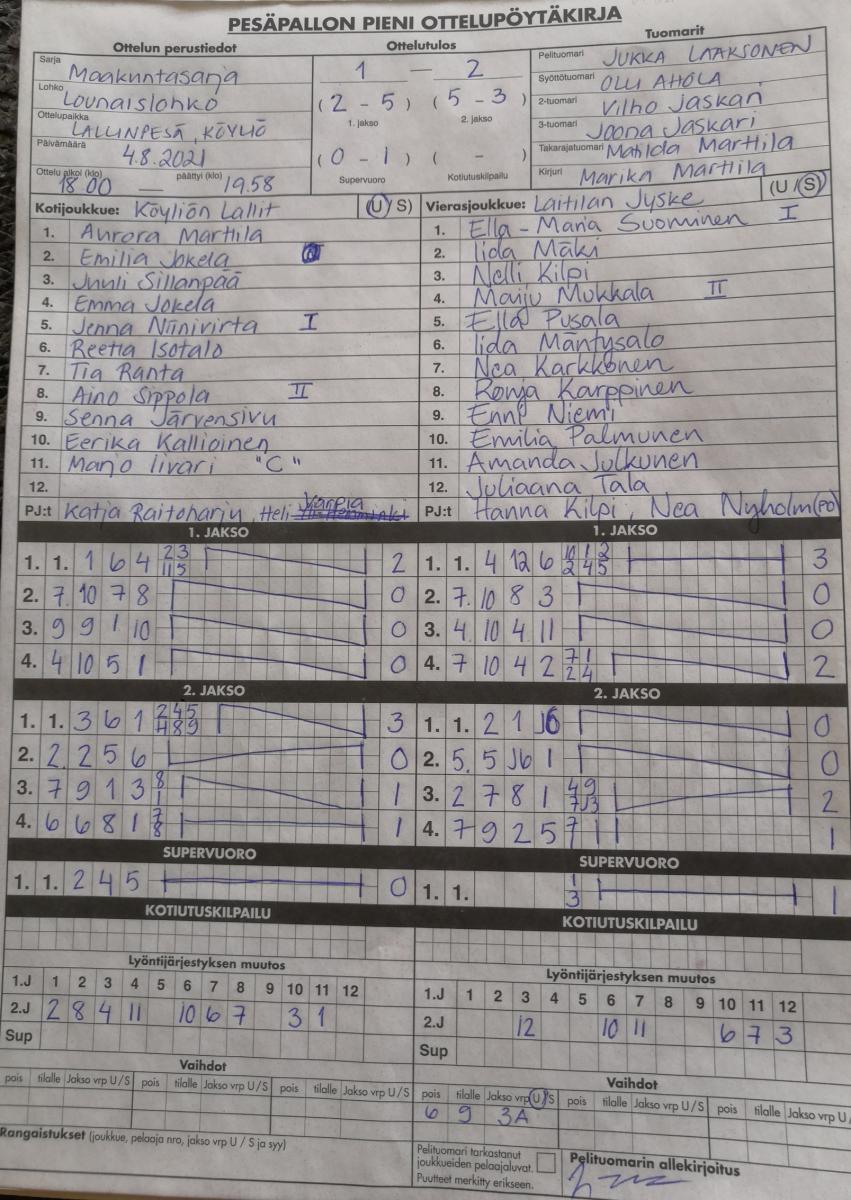 PESÄPALLON PIENI OTTELUPÖYTÄKIRJA
Ottelun perustiedot
Sarja Maakuntasarja
Lohko Lounaislohko
Ottelupaikka LALLINPESÄ, KÖYLIÖ
Päivämäärä 4.8.2021
Ottelu alkoi (klo) 18.00 — päättyi (klo) 19.58
Ottelutulos
1 — 2
(2 - 5) (5 - 3)
1. jakso 2. jakso
(0 - 1) ( - )
Supervuoro Kotiutuskilpailu
Tuomarit
Pelituomari JUKKA LAAKSONEN
Syöttötuomari OLLI AHOLA
2-tuomari Vilho Jaskari
3-tuomari Joona Jaskari
Takarajatuomari Matilda Marttila
Kirjuri Marika Marttila
Kotijoukkue: Köyliön Lallit (U/S)
1. Aurora Marttila
2. Emilia Jokela
3. Juuli Sillanpää
4. Emma Jokela
5. Jenna Niinivirta I
6. Reetta Isotalo
7. Tia Ranta
8. Aino Sippola II
9. Senna Järvensivu
10. Eerika Kallioinen
11. Marjo Iivari "C"
12.
PJ:t Katja Raitoharju, Heli Varpia
Vierasjoukkue: Laitilan Jyske (U/S)
1. Ella-Maria Suominen I
2. Iida Mäki
3. Nelli Kilpi
4. Maiju Mukkala II
5. Ella Pusala
6. Iida Mäntysalo
7. Nea Karkkonen
8. Ronja Karppinen
9. Enni Niemi
10. Emilia Palmunen
11. Amanda Julkunen
12. Juliaana Tala
PJ:t Hanna Kilpi, Nea Nyholm (PO)
1. JAKSO
1. 1. 1 6 4 2 3 11 5 2
2. 7. 10 7 8 0
3. 9 9 1 10 0
4. 4 10 5 1 0
1. JAKSO
1. 1. 4 12 6 10 1 2 2 4 5 3
2. 7. 10 8 3 0
3. 4. 10 4 11 0
4. 7 10 4 2 7 1 2 4 2
2. JAKSO
1. 1. 3 6 1 2 4 5 4 8 9 3
2. 2. 2 5 6 0
3. 7 9 1 3 8 1 1
4. 6 6 8 1 7 8 1
2. JAKSO
1. 1. 2 1 J6 0
2. 5. 5 J6 1 0
3. 2 7 8 1 4 9 7 J3 2
4. 7 9 2 5 7 1 1
SUPERVUORO
1. 1. 2 4 5 0
SUPERVUORO
1. 1. 1 3 1
KOTIUTUSKILPAILU
KOTIUTUSKILPAILU
Lyöntijärjestyksen muutos
1.J 1 2 3 4 5 6 7 8 9 10 11 12
2.J 2 8 4 11 10 6 7 3 1
Sup
Lyöntijärjestyksen muutos
1.J 1 2 3 4 5 6 7 8 9 10 11 12
2.J 12 10 11 6 7 3
Sup
Vaihdot
pois tilalle Jakso vrp U/S pois tilalle Jakso vrp U/S pois tilalle Jakso vrp U/S
Vaihdot
pois tilalle Jakso vrp U/S pois tilalle Jakso vrp U/S pois tilalle Jakso vrp U/
6 9 3A
Rangaistukset (joukkue, pelaaja nro, jakso vrp U / S ja syy)
Pelituomari tarkastanut
joukkueiden pelaajaluvat.
Puutteet merkitty erikseen.
Pelituomarin allekirjoitus